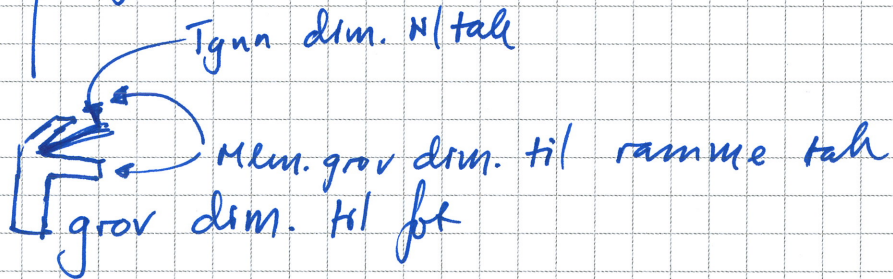 Tynn dim. N/tak
Mem. grov dim. til ramme tak
grov dim. til fot